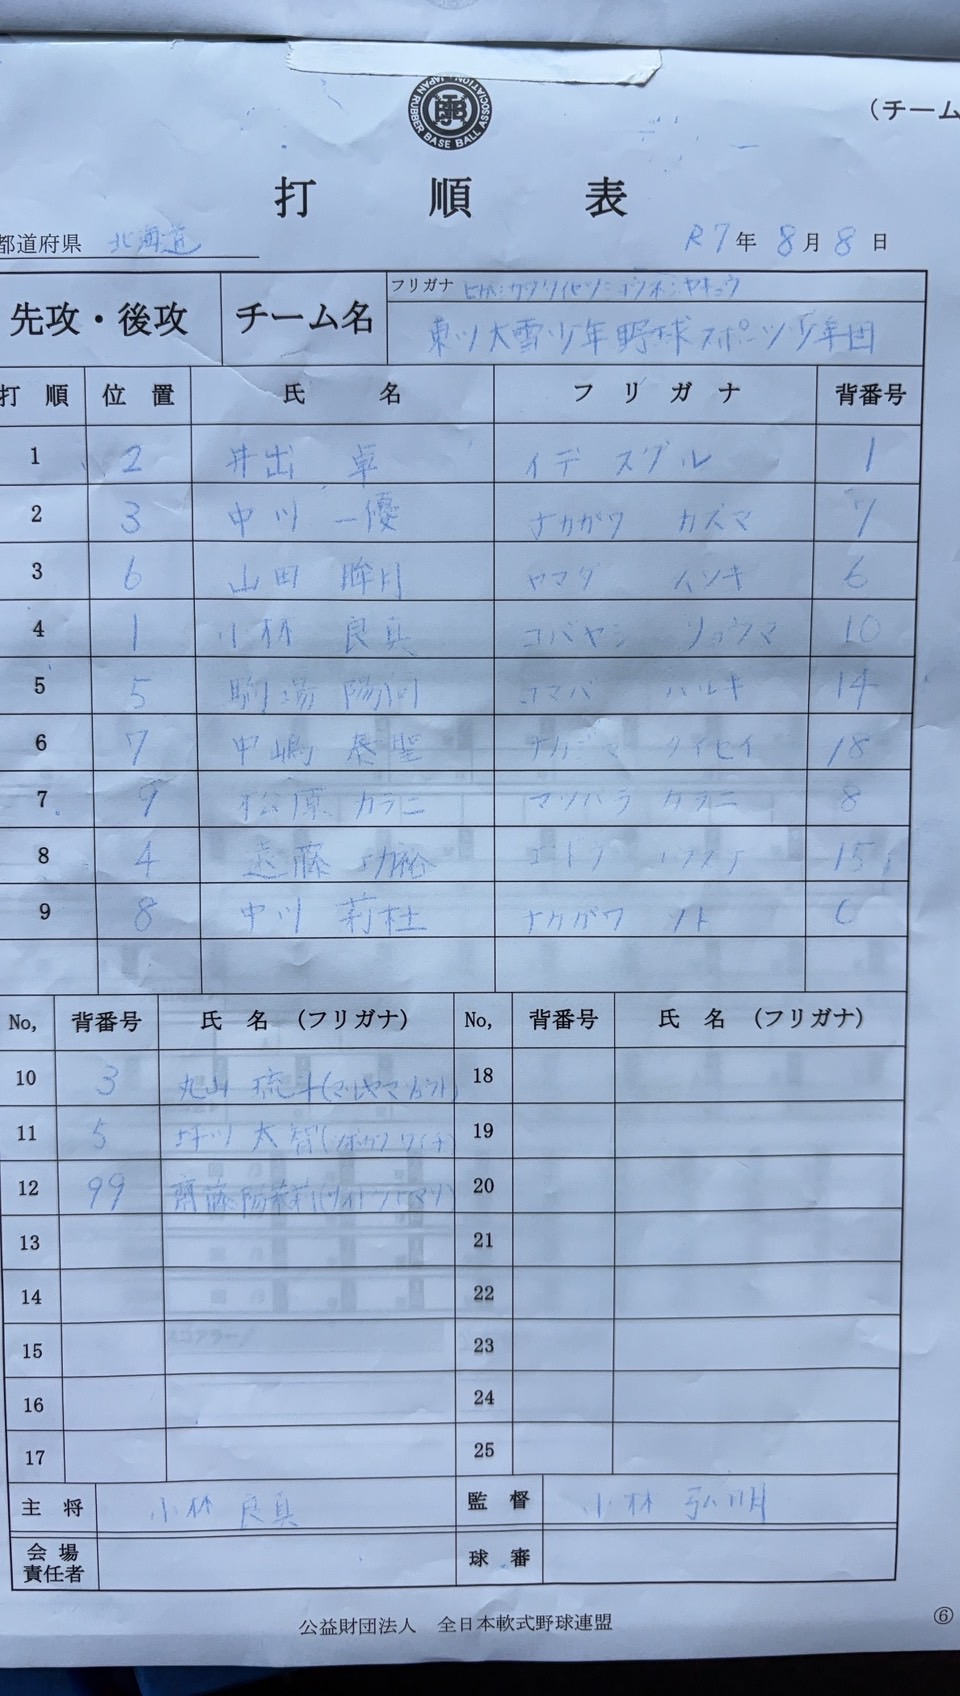 JAPAN RUBBER BASE BALL ASSOCIATION
(チーム
打順表
都道府県 北海道 R7年 8月 8日
フリガナ
先攻・後攻 チーム名 東川大雪少年野球スポーツ少年団
打順 位置 氏名 フリガナ 背番号
1 2 井出 卓 イデ スグル 1
2 3 中川 一優 ナカガワ カズマ 7
3 6 山田 眸月 ヤマダ ムツキ
4 1 小林 良真 コバヤシ リョウマ 10
5 5 駒場 陽 コマバ ハルキ 14
6 7 中嶋 泰聖 ナカジマ タイセイ 18
7 9 松原 カラニ マツバラ カラニ 8
8 4 遠藤 功裕 エンドウ 15
9 8 中川 莉杜 ナカガワ リト
No, 背番号 氏名 (フリガナ) No, 背番号 氏名 (フリガナ)
10 3 丸山 琉斗 (マルヤマ リュウト) 18
11 5 太智 19
12 99 齊藤 20
13 21
14 22
15 23
16 24
17 25
主将 小林 良真 監督 小林 弘明
会場責任者 球審
公益財団法人 全日本軟式野球連盟
⑥